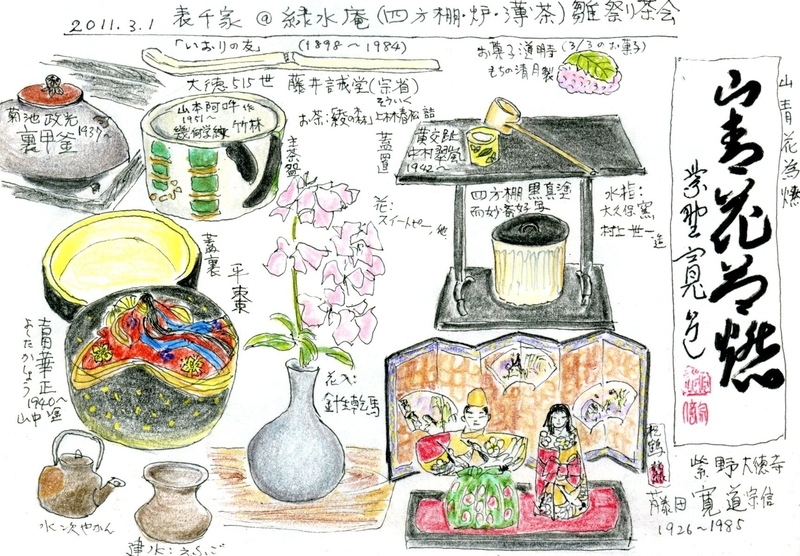 2011.3.1 表千家 @ 緑水庵 (四方棚・炉・薄茶) 雛祭り茶会
「いおりの友」 (1898〜1984)
大徳515世 藤井誡堂(宗省)
お菓子道明寺 (3/3のお菓子)
もちの清月製
お茶:「嶽の森」
上林春松詰
菊池政光
1937〜
裏甲釜
山本阿吽作
1951〜
幾何学紋 竹林
主茶盌
蓋置
黄交趾
中村翠嵐
1942〜
花:
スイートピー,他
四方棚 黒真塗
而妙斎好写
水指:
大久保窯
村上世一造
山青花為燃
山青花為燃
紫野寛道
紫野大徳寺
藤田寛道宗信
1926〜1985
蓋裏
平棗
よしたかしょう
華正
1940〜
山中塗
花入:
針生乾馬
松鶴
水次やかん
建水:えふご